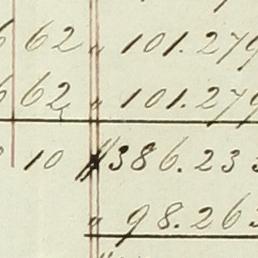 6 62 " 101.279
6 62 " 101.279
10 $386.233
" 98.263